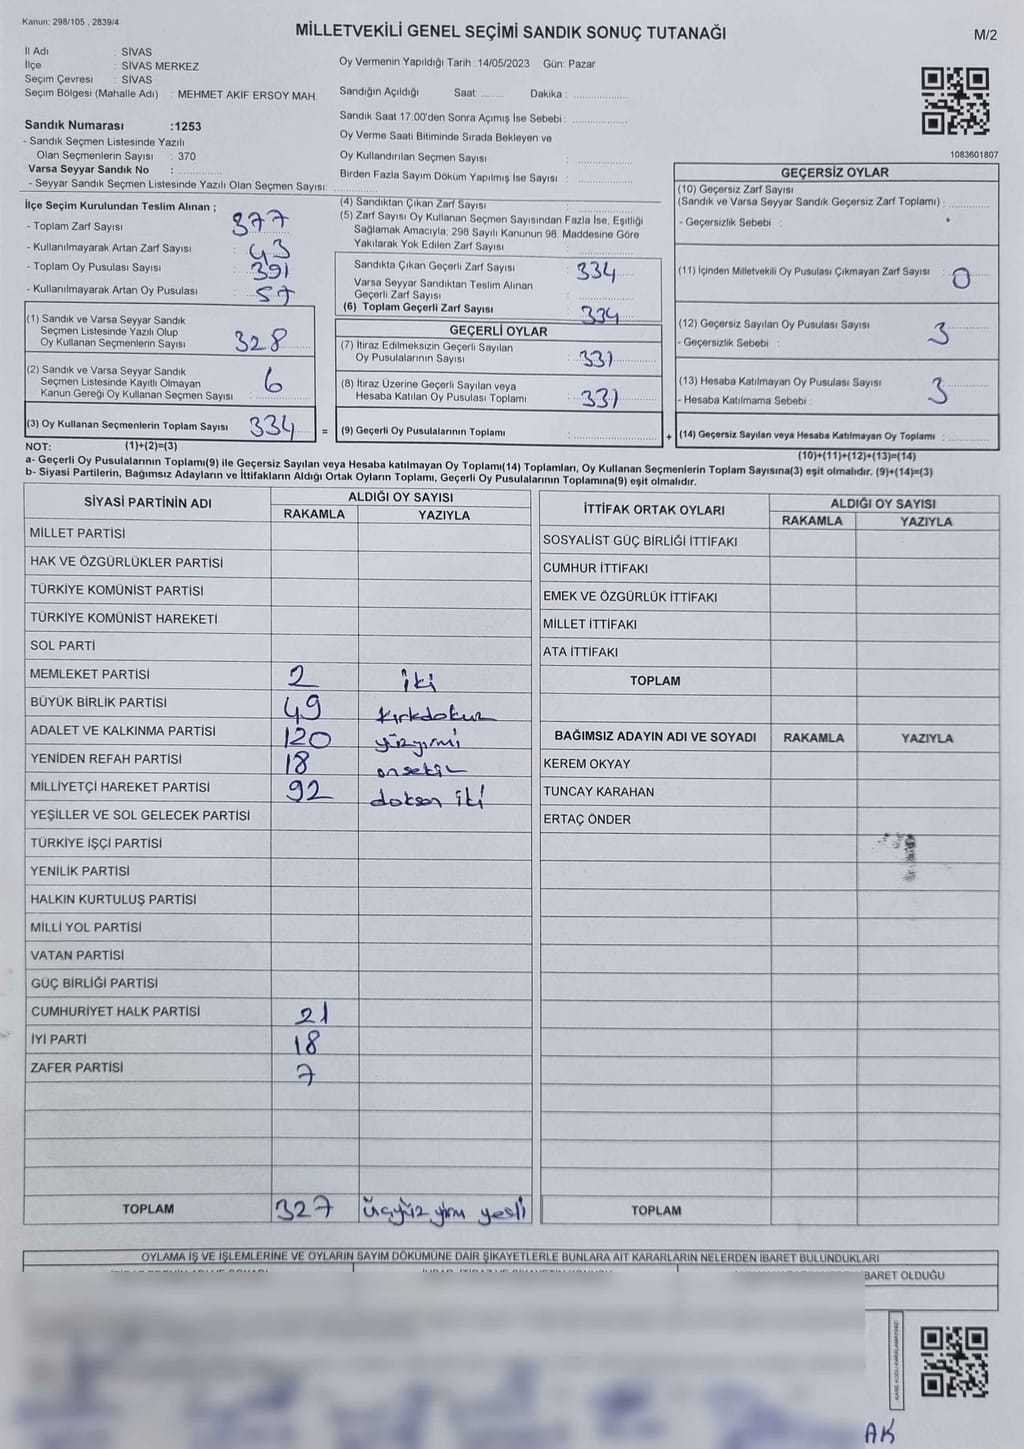 Kanun: 298/105 , 2839/4
MİLLETVEKİLİ GENEL SEÇİMİ SANDIK SONUÇ TUTANAĞI
M/2
İl Adı : SİVAS
İlçe : SİVAS MERKEZ
Seçim Çevresi : SİVAS
Seçim Bölgesi (Mahalle Adı) : MEHMET AKİF ERSOY MAH.
Sandık Numarası :1253
- Sandık Seçmen Listesinde Yazılı
Olan Seçmenlerin Sayısı : 370
Varsa Seyyar Sandık No : ..............
- Seyyar Sandık Seçmen Listesinde Yazılı Olan Seçmen Sayısı: ..............
Oy Vermenin Yapıldığı Tarih :14/05/2023 Gün: Pazar
Sandığın Açıldığı Saat: ........ Dakika : ..................
Sandık Saat 17:00'den Sonra Açımış İse Sebebi : ..................
Oy Verme Saati Bitiminde Sırada Bekleyen ve
Oy Kullandırılan Seçmen Sayısı : ..................
Birden Fazla Sayım Döküm Yapılmış İse Sayısı : ..................
1083601807
İlçe Seçim Kurulundan Teslim Alınan ;
- Toplam Zarf Sayısı : 377
- Kullanılmayarak Artan Zarf Sayısı : 43
- Toplam Oy Pusulası Sayısı : 391
- Kullanılmayarak Artan Oy Pusulası : 57
(1) Sandık ve Varsa Seyyar Sandık
Seçmen Listesinde Yazılı Olup
Oy Kullanan Seçmenlerin Sayısı : 328
(2) Sandık ve Varsa Seyyar Sandık
Seçmen Listesinde Kayıtlı Olmayan
Kanun Gereği Oy Kullanan Seçmen Sayısı : 6
(3) Oy Kullanan Seçmenlerin Toplam Sayısı : 334
(4) Sandıktan Çıkan Zarf Sayısı : ..................
(5) Zarf Sayısı Oy Kullanan Seçmen Sayısından Fazla İse, Eşitliği
Sağlamak Amacıyla; 298 Sayılı Kanunun 98. Maddesine Göre
Yakılarak Yok Edilen Zarf Sayısı : ..................
Sandıkta Çıkan Geçerli Zarf Sayısı : 334
Varsa Seyyar Sandıktan Teslim Alınan
Geçerli Zarf Sayısı : ..................
(6) Toplam Geçerli Zarf Sayısı : 334
GEÇERLİ OYLAR
(7) İtiraz Edilmeksizin Geçerli Sayılan
Oy Pusulalarının Sayısı : 331
(8) İtiraz Üzerine Geçerli Sayılan veya
Hesaba Katılan Oy Pusulası Toplamı : 331
= (9) Geçerli Oy Pusulalarının Toplamı : ..................
GEÇERSİZ OYLAR
(10) Geçersiz Zarf Sayısı
(Sandık ve Varsa Seyyar Sandık Geçersiz Zarf Toplamı) : ..............
- Geçersizlik Sebebi :
(11) İçinden Milletvekili Oy Pusulası Çıkmayan Zarf Sayısı : 0
(12) Geçersiz Sayılan Oy Pusulası Sayısı : 3
- Geçersizlik Sebebi :
(13) Hesaba Katılmayan Oy Pusulası Sayısı : 3
- Hesaba Katılmama Sebebi :
+ (14) Geçersiz Sayılan veya Hesaba Katılmayan Oy Toplamı : ..............
NOT: (1)+(2)=(3)
(10)+(11)+(12)+(13)=(14)
a- Geçerli Oy Pusulalarının Toplamı(9) ile Geçersiz Sayılan veya Hesaba katılmayan Oy Toplamı(14) Toplamları, Oy Kullanan Seçmenlerin Toplam Sayısına(3) eşit olmalıdır. (9)+(14)=(3)
b- Siyasi Partilerin, Bağımsız Adayların ve İttifakların Aldığı Ortak Oyların Toplamı, Geçerli Oy Pusulalarının Toplamına(9) eşit olmalıdır.
SİYASİ PARTİNİN ADI
ALDIĞI OY SAYISI
RAKAMLA YAZIYLA
MİLLET PARTİSİ
HAK VE ÖZGÜRLÜKLER PARTİSİ
TÜRKİYE KOMÜNİST PARTİSİ
TÜRKİYE KOMÜNİST HAREKETİ
SOL PARTİ
MEMLEKET PARTİSİ 2 iki
BÜYÜK BİRLİK PARTİSİ 49 kırkdokuz
ADALET VE KALKINMA PARTİSİ 120 yüzyirmi
YENİDEN REFAH PARTİSİ 18 onsekiz
MİLLİYETÇİ HAREKET PARTİSİ 92 doksan iki
YEŞİLLER VE SOL GELECEK PARTİSİ
TÜRKİYE İŞÇİ PARTİSİ
YENİLİK PARTİSİ
HALKIN KURTULUŞ PARTİSİ
MİLLİ YOL PARTİSİ
VATAN PARTİSİ
GÜÇ BİRLİĞİ PARTİSİ
CUMHURİYET HALK PARTİSİ 21
İYİ PARTİ 18
ZAFER PARTİSİ 7
TOPLAM 327 üçyüz yirmi yedi
İTTİFAK ORTAK OYLARI
ALDIĞI OY SAYISI
RAKAMLA YAZIYLA
SOSYALİST GÜÇ BİRLİĞİ İTTİFAKI
CUMHUR İTTİFAKI
EMEK VE ÖZGÜRLÜK İTTİFAKI
MİLLET İTTİFAKI
ATA İTTİFAKI
TOPLAM
BAĞIMSIZ ADAYIN ADI VE SOYADI RAKAMLA YAZIYLA
KEREM OKYAY
TUNCAY KARAHAN
ERTAÇ ÖNDER
TOPLAM
OYLAMA İŞ VE İŞLEMLERİNE VE OYLARIN SAYIM DÖKÜMÜNE DAİR ŞİKAYETLERLE BUNLARA AİT KARARLARIN NELERDEN İBARET BULUNDUKLARI
BARET OLDUĞU
AK